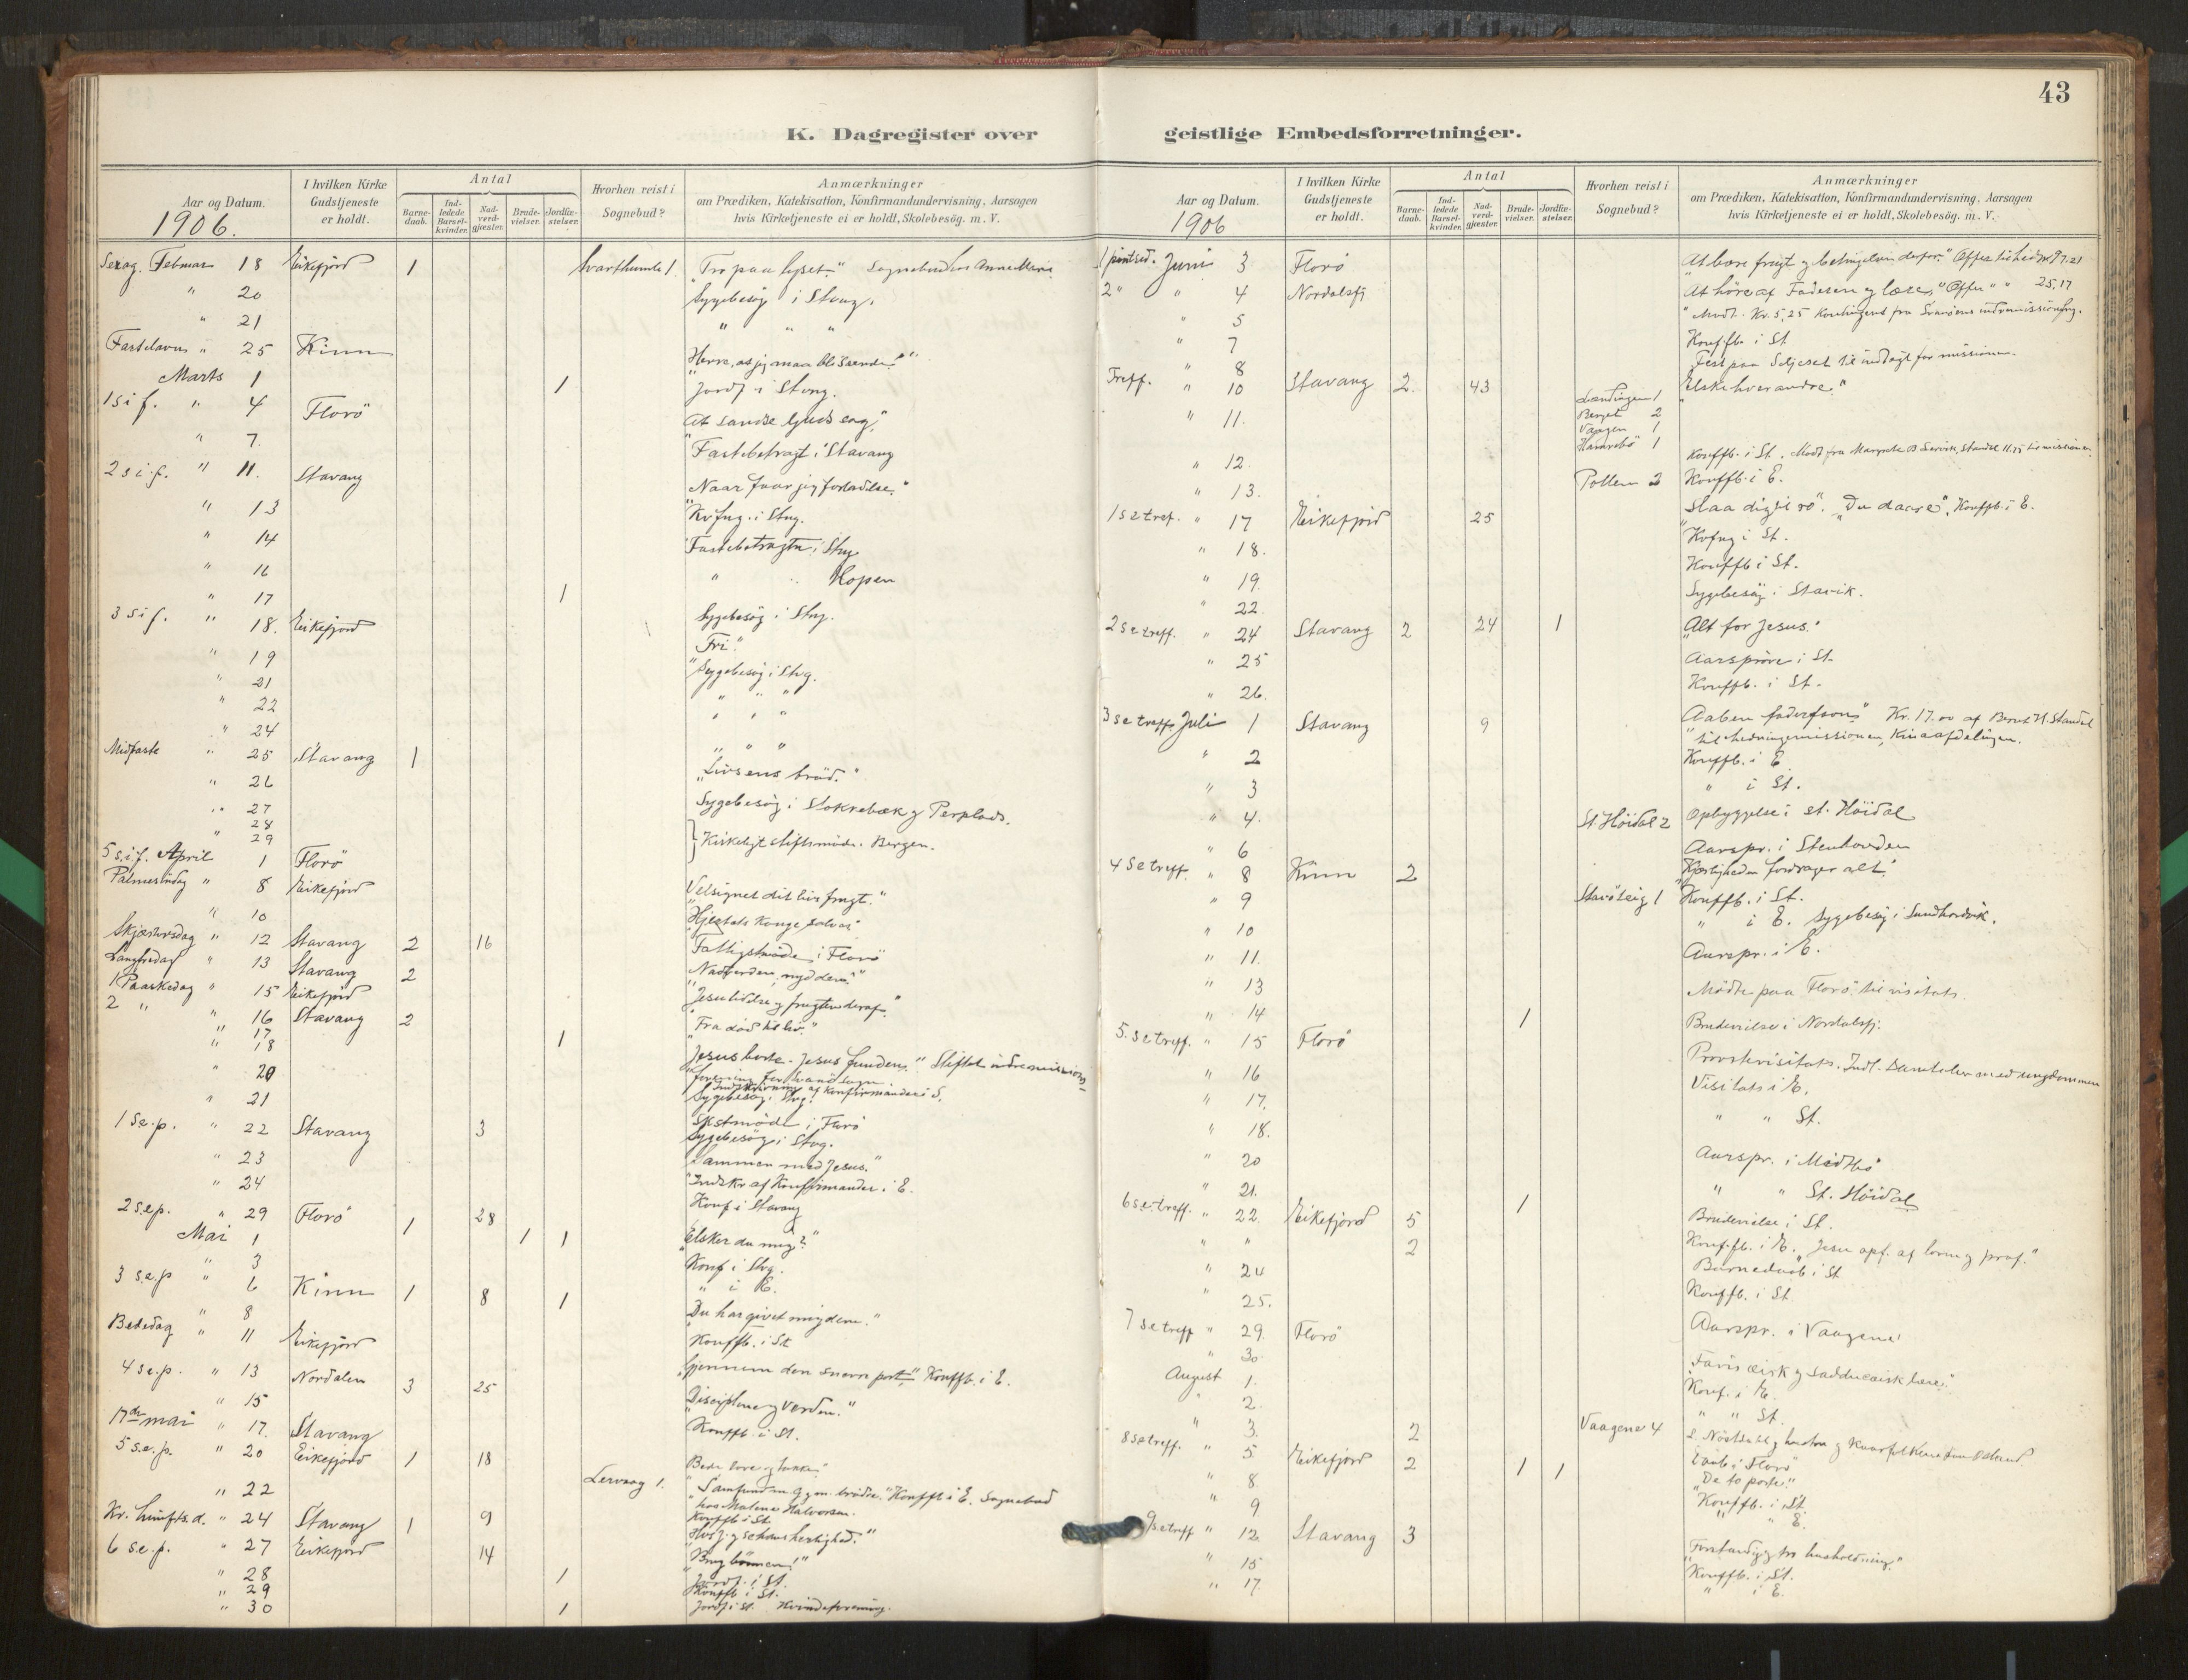 43
K. Dagregister over
geistlige Embedsforretninger.
Aar og Datum.
1906.
I hvilken Kirke Gudstjeneste er holdt.
Antal
Barne-daab.
Ind-ledede Barsel-kvinder.
Nad-verd-gjæster.
Brude-vielser.
Jordfæ-stelser.
Hvorhen reist i Sognebud?
Anmærkninger
om Prædiken, Katekisation, Konfirmandundervisning, Aarsagen
hvis Kirketjeneste ei er holdt, Skolebesög. m. V.
Sexag. Februar 18 Eikefjord 1 Svarthumle 1. "Tro paa lyset."
" 20 Sygebesøg i Stavg.
" 21 " " "
Fastelavns " 25 Kinn "Herre, at jeg maa bli seende!"
Marts 1 1 Jordf i Stvng.
1 s i f. " 4 Florö At sande Guds sag,"
" 7. "Fastebetragt i Stavang
2 s i f. " 11. Stavang Naar faar jeg forladelse."
" 13 Kvfng. i Stvg.
" 14 Fastebetragtn i Stvg
" 16 " " Hopen
" 17 1
3 s i f. " 18. Eikefjord Sygebesøg i Stvg.
" 19 "Fri."
" 21 Sygebesøg i Stvg.
" 22 " " "
" 24 " " "
Midfaste " 25 Stavang 1 " " "
" 26 "Livsens bröd."
" 27 Sygebesøg i Stokkebæk og Perplads.
" 28
" 29 Kirkeligt stiftsmöde i Bergen.
5 s.i.f. April 1 Florö
Palmesöndag " 8 Eikefjord "Velsignet dit livs frugt."
" 10 "Hjertets Konge
Skjærtorsdag " 12 Stavang 2 16 Fattigmöde i Florö
Langfredag " 13 Stavang 2 "Nadverden, nyd den!"
1 Paaskedag " 15 Eikefjord "Jesu lidelse og frugten deraf."
2 " " 16 Stavang 2 "Fra död til liv."
" 17
" 18 1
" 20 "Jesus borte - Jesus funden." Stiftet indremissions
forening for Svanö sogn.
" 21 Indskrivning af Konfirmander i S.
Sygebesøg i Stvg.
1 s.e.p. " 22 Stavang 3 Skstmöde i Florö
Sygebesøg i Stvg.
" 23 "Sammen med Jesus."
" 24 Indskr af Konfirmander i E.
2 s.e.p. " 29 Florö 1 28 Konf i Stavang
Mai 1 1 1 "Elsker du mig?"
" 3 Konf i Stvg.
3 s.e.p " 6 Kinn 1 8 1 " i E.
" 8 "Du har givet mig dem."
Bededag " 11 Eikefjord Konffb. i St
4 s.e.p. " 13 Nordalen 3 25 "Gjennem den snevre port," Konffb. i E.
" 15 "Disciplene og verden."
17de mai " 17. Stavang Konffb. i St.
5 s.e.p. " 20 Eikefjord 1 18 Bede love og takke,"
" 22 Lervaag 1. "Samfund m. G og m. brödre." Konffb i E. Sognebud
hos Malene Halvorsen.
Kr. himftsd. " 24 Stavang 1 9 Konffb i St.
6 s.e.p. " 27 Eikefjord 14 "Hvs J. og se hans herlighed."
"Brug bönnen!"
" 28 1 Jordf. i St.
" 29 Konffb i St.
" 30 1 Jordf i St. Kvindeforening.
Aar og Datum.
1906
I hvilken Kirke Gudstjeneste er holdt.
Antal
Barne-daab.
Ind-ledede Barsel-kvinder.
Nad-verd-gjæster.
Brude-vielser.
Jordfæ-stelser.
Hvorhen reist i Sognebud?
Anmærkninger
om Prædiken, Katekisation, Konfirmandundervisning, Aarsagen
hvis Kirketjeneste ei er holdt, Skolebesög. m. V.
1 pintsed. Juni 3 Florö "At bære frugt og betingelsen derfor."
2 " " 4 Nordalsfj "At höre af Faderen og lære," Offer " " 25,17
" 5 Modt. Kr. 5,25 Kontingent fra Svanöens indremissionsfng.
" 7 Konffb. i St
" 8 Fest paa Seljeset til indtægt for missionen.
Treff. " 10 Stavang 2. 43 "Elske hverandre."
" 11. Berget 2
Vaagen 1
Hamrebö 1
" 12. Konffb. i St.
" 13. Pollen 2 Konffb. i E.
1 s e tref. " 17 Eikefjord 25 "Slaa dig til ro". "Du daare". Konffb. i E.
" 18. Kvfng i St.
" 19. Konffb i St.
" 22. Sygebesøg i Stavik.
2 s e treff. " 24 Stavang 2 24 1 "Alt for Jesus."
" 25 Aarspröve i St.
" 26. Konffb. i St.
3 s e treff. Juli 1 Stavang 9 "Aaben faderfavn" Kr. 17.00 af Bernt H. Standal
til hedningemissionen, Kinaafdelingen.
" 2 Konffb. i E
" 3 " i St.
" 4. St Höidal 2 Opbyggelse i St. Höidal
" 6 Aarspr. i Stenhovden
4 s e treff. " 8 Kinn 2 "Kjærligheden fordrager alt."
" 9 Konffb. i St.
" 10 " i E. Sygebesøg i Sundhordvik.
" 11. Aarspr. i E.
" 13 Mödte paa Florö til visitats
" 14 1 Brudevielse i Nordalsfj.
5. s e treff. " 15 Florö Provstevisitats. Indl. Samtaler med ungdommen
" 16 Visitats i E.
" 17. " " St.
" 18.
" 20 Aarspr. i Midtbö
" 21. " " St. Höidal
6 s.e. treff. " 22. Eikefjord 5 1 Brudevielse i St.
" " 2 Konffb. i E. "Jesu opf. af loven og prof."
" 24 Barnedaab i St
" 25. Konffb. i St
7 s e treff " 29. Florö Aarspr. i Vaagene
" 30.
August 1. "Farisæisk og sadducæisk lære."
" 2. Konf. i E.
" 3. 2 Vaagene 4 " " St.
8 s e treff. " 5 Eikefjord 2 1 1 Daab i Florö
" 8. "De to porte."
" 9 Konffb. i St
" " E.
9 s e treff " 12. Stavang 3
" 15 "Forstandig og tro husholdning."
" 17. Konffb. i St.
" i E.